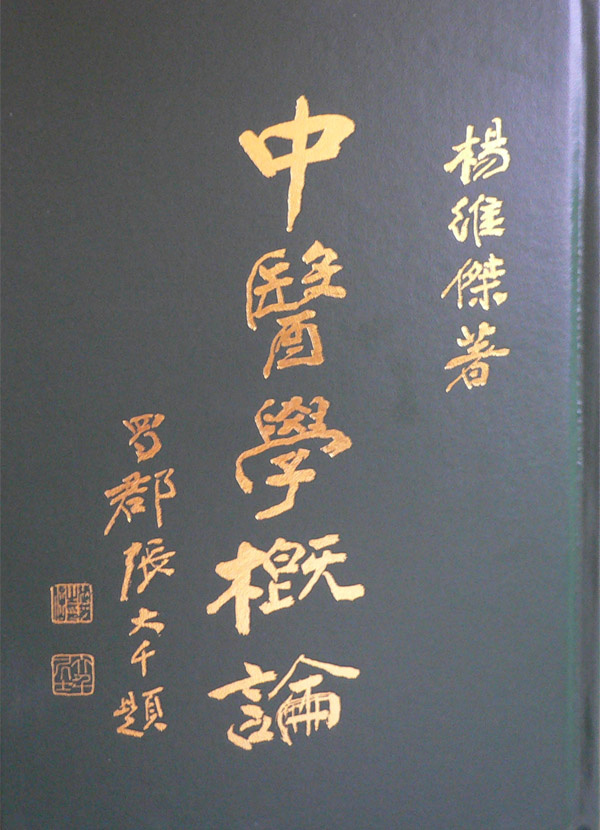 楊維傑著
中醫學概論
蜀郡張大千題